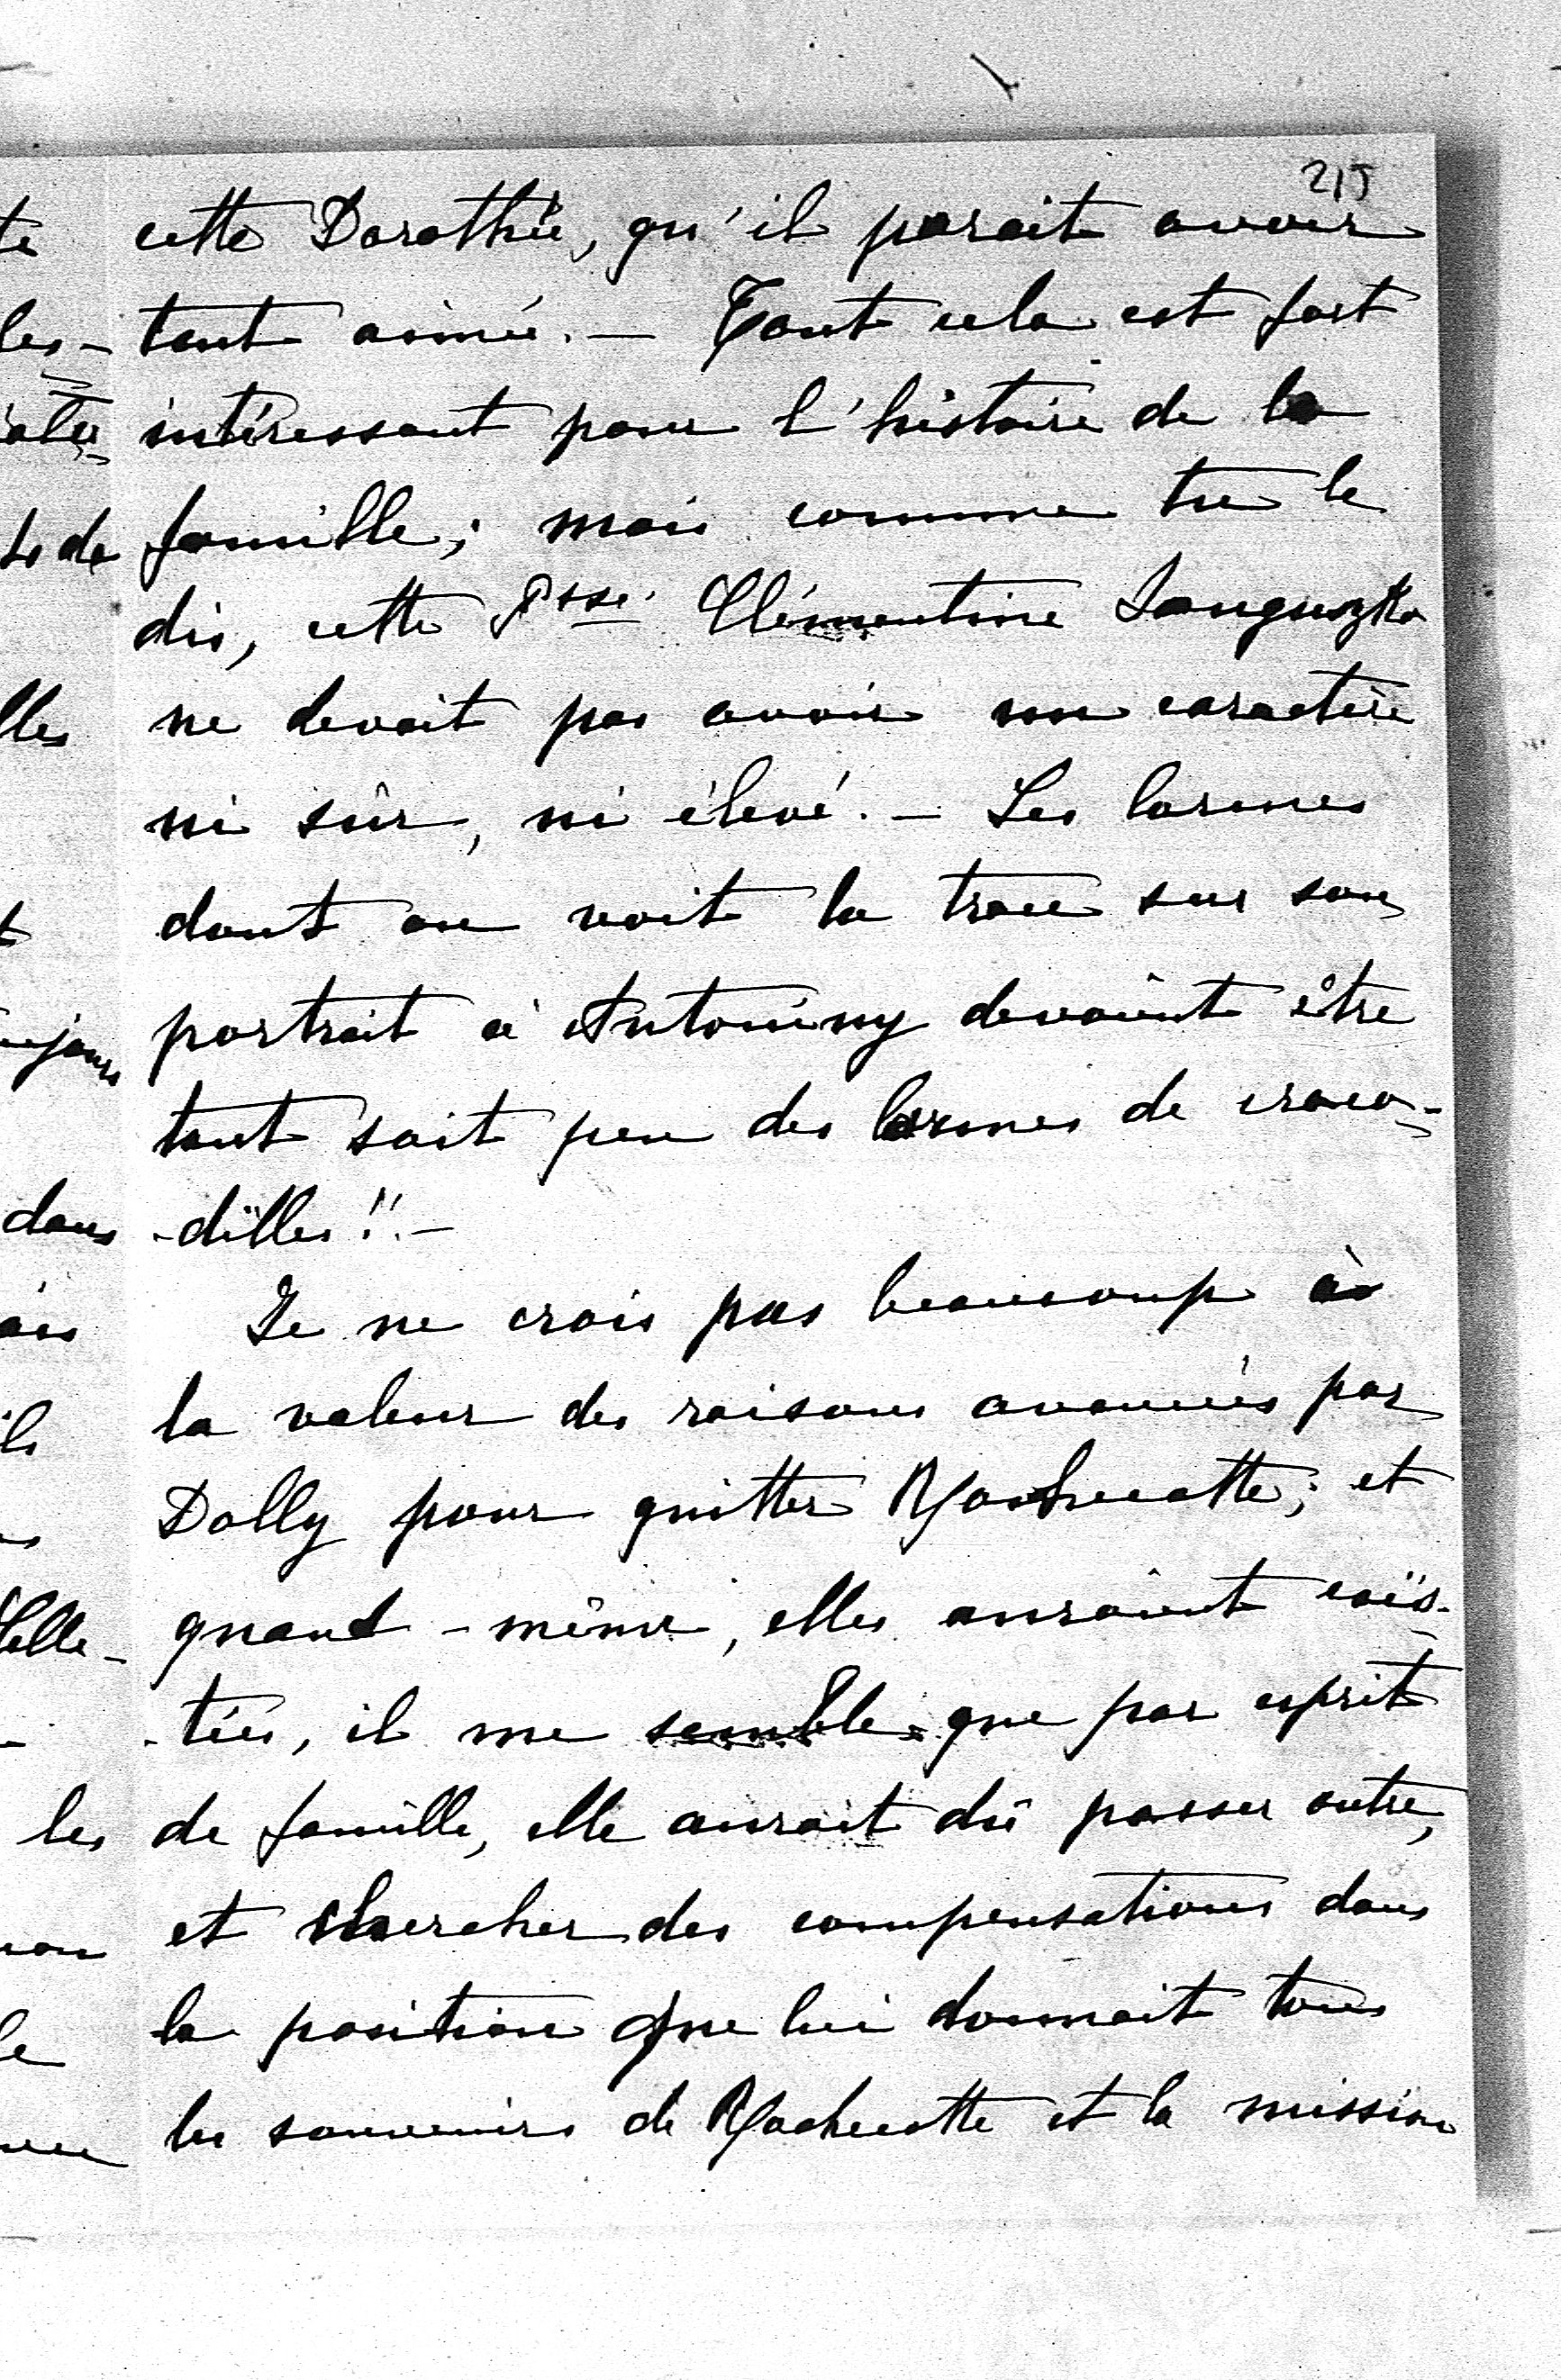 215
cette Dorothée, qu'il parait avoir
tant aimée. — Tout cela est fort
intéressant pour l'histoire de la
famille; mais comme tu le
dis, cette Psse. Clémentine Sanguszko
ne devait pas avoir un caractère
ni sûr, ni élevé. — Les larmes
dont on voit la trace sur son
portrait à Antoniny devaient être
tant soit peu des larmes de croco-
-dilles!! —
Je ne crois pas beaucoup à
la valeur des raisons avancées par
Dolly pour quitter Rochecotte; et
quand-même, elles auraient exis-
-tées, il me semble que par esprit
de famille, elle aurait dû passer outre,
et chercher des compensations dans
la position que lui donnait tous
les souvenirs de Rochecotte et la mission